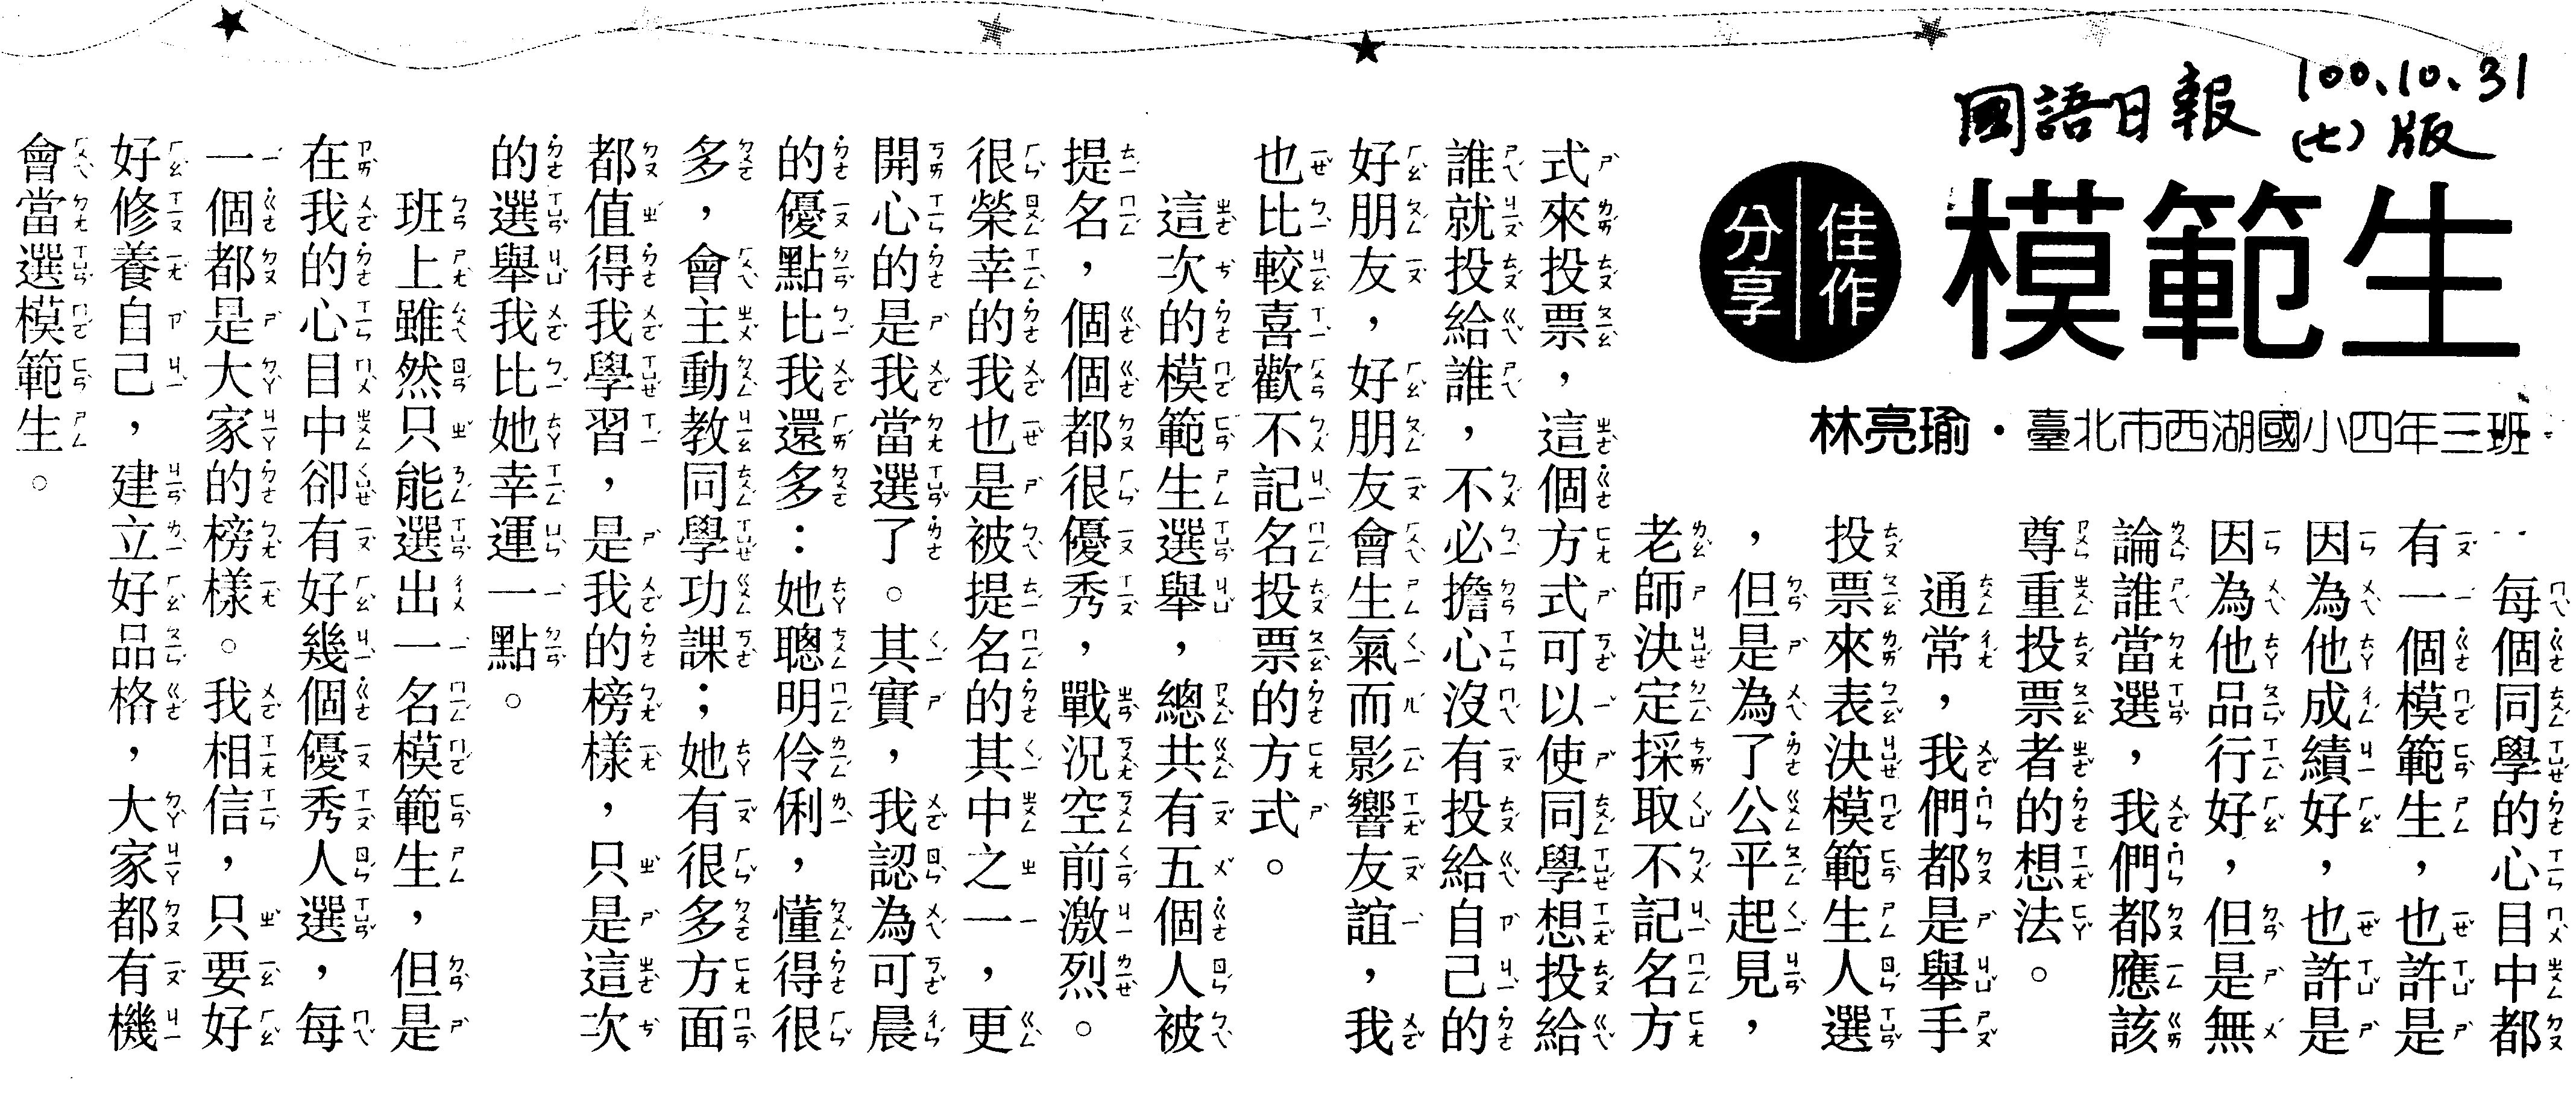 國語日報
100.10.31
(七)版
模範生
佳作
分享
林亮瑜・臺北市西湖國小四年三班
每個同學的心目中都
有一個模範生，也許是
因為他成績好，也許是
因為他品行好，但是無
論誰當選，我們都應該
尊重投票者的想法。
通常，我們都是舉手
投票來表決模範生人選
，但是為了公平起見，
老師決定採取不記名方
式來投票，這個方式可以使同學想投給
誰就投給誰，不必擔心沒有投給自己的
好朋友，好朋友會生氣而影響友誼，我
也比較喜歡不記名投票的方式。
這次的模範生選舉，總共有五個人被
提名，個個都很優秀，戰況空前激烈。
很榮幸的我也是被提名的其中之一，更
開心的是我當選了。其實，我認為可晨
的優點比我還多：她聰明伶俐，懂得很
多，會主動教同學功課；她有很多方面
都值得我學習，是我的榜樣，只是這次
的選舉我比她幸運一點。
班上雖然只能選出一名模範生，但是
在我的心目中卻有好幾個優秀人選，每
一個都是大家的榜樣。我相信，只要好
好修養自己，建立好品格，大家都有機
會當選模範生。